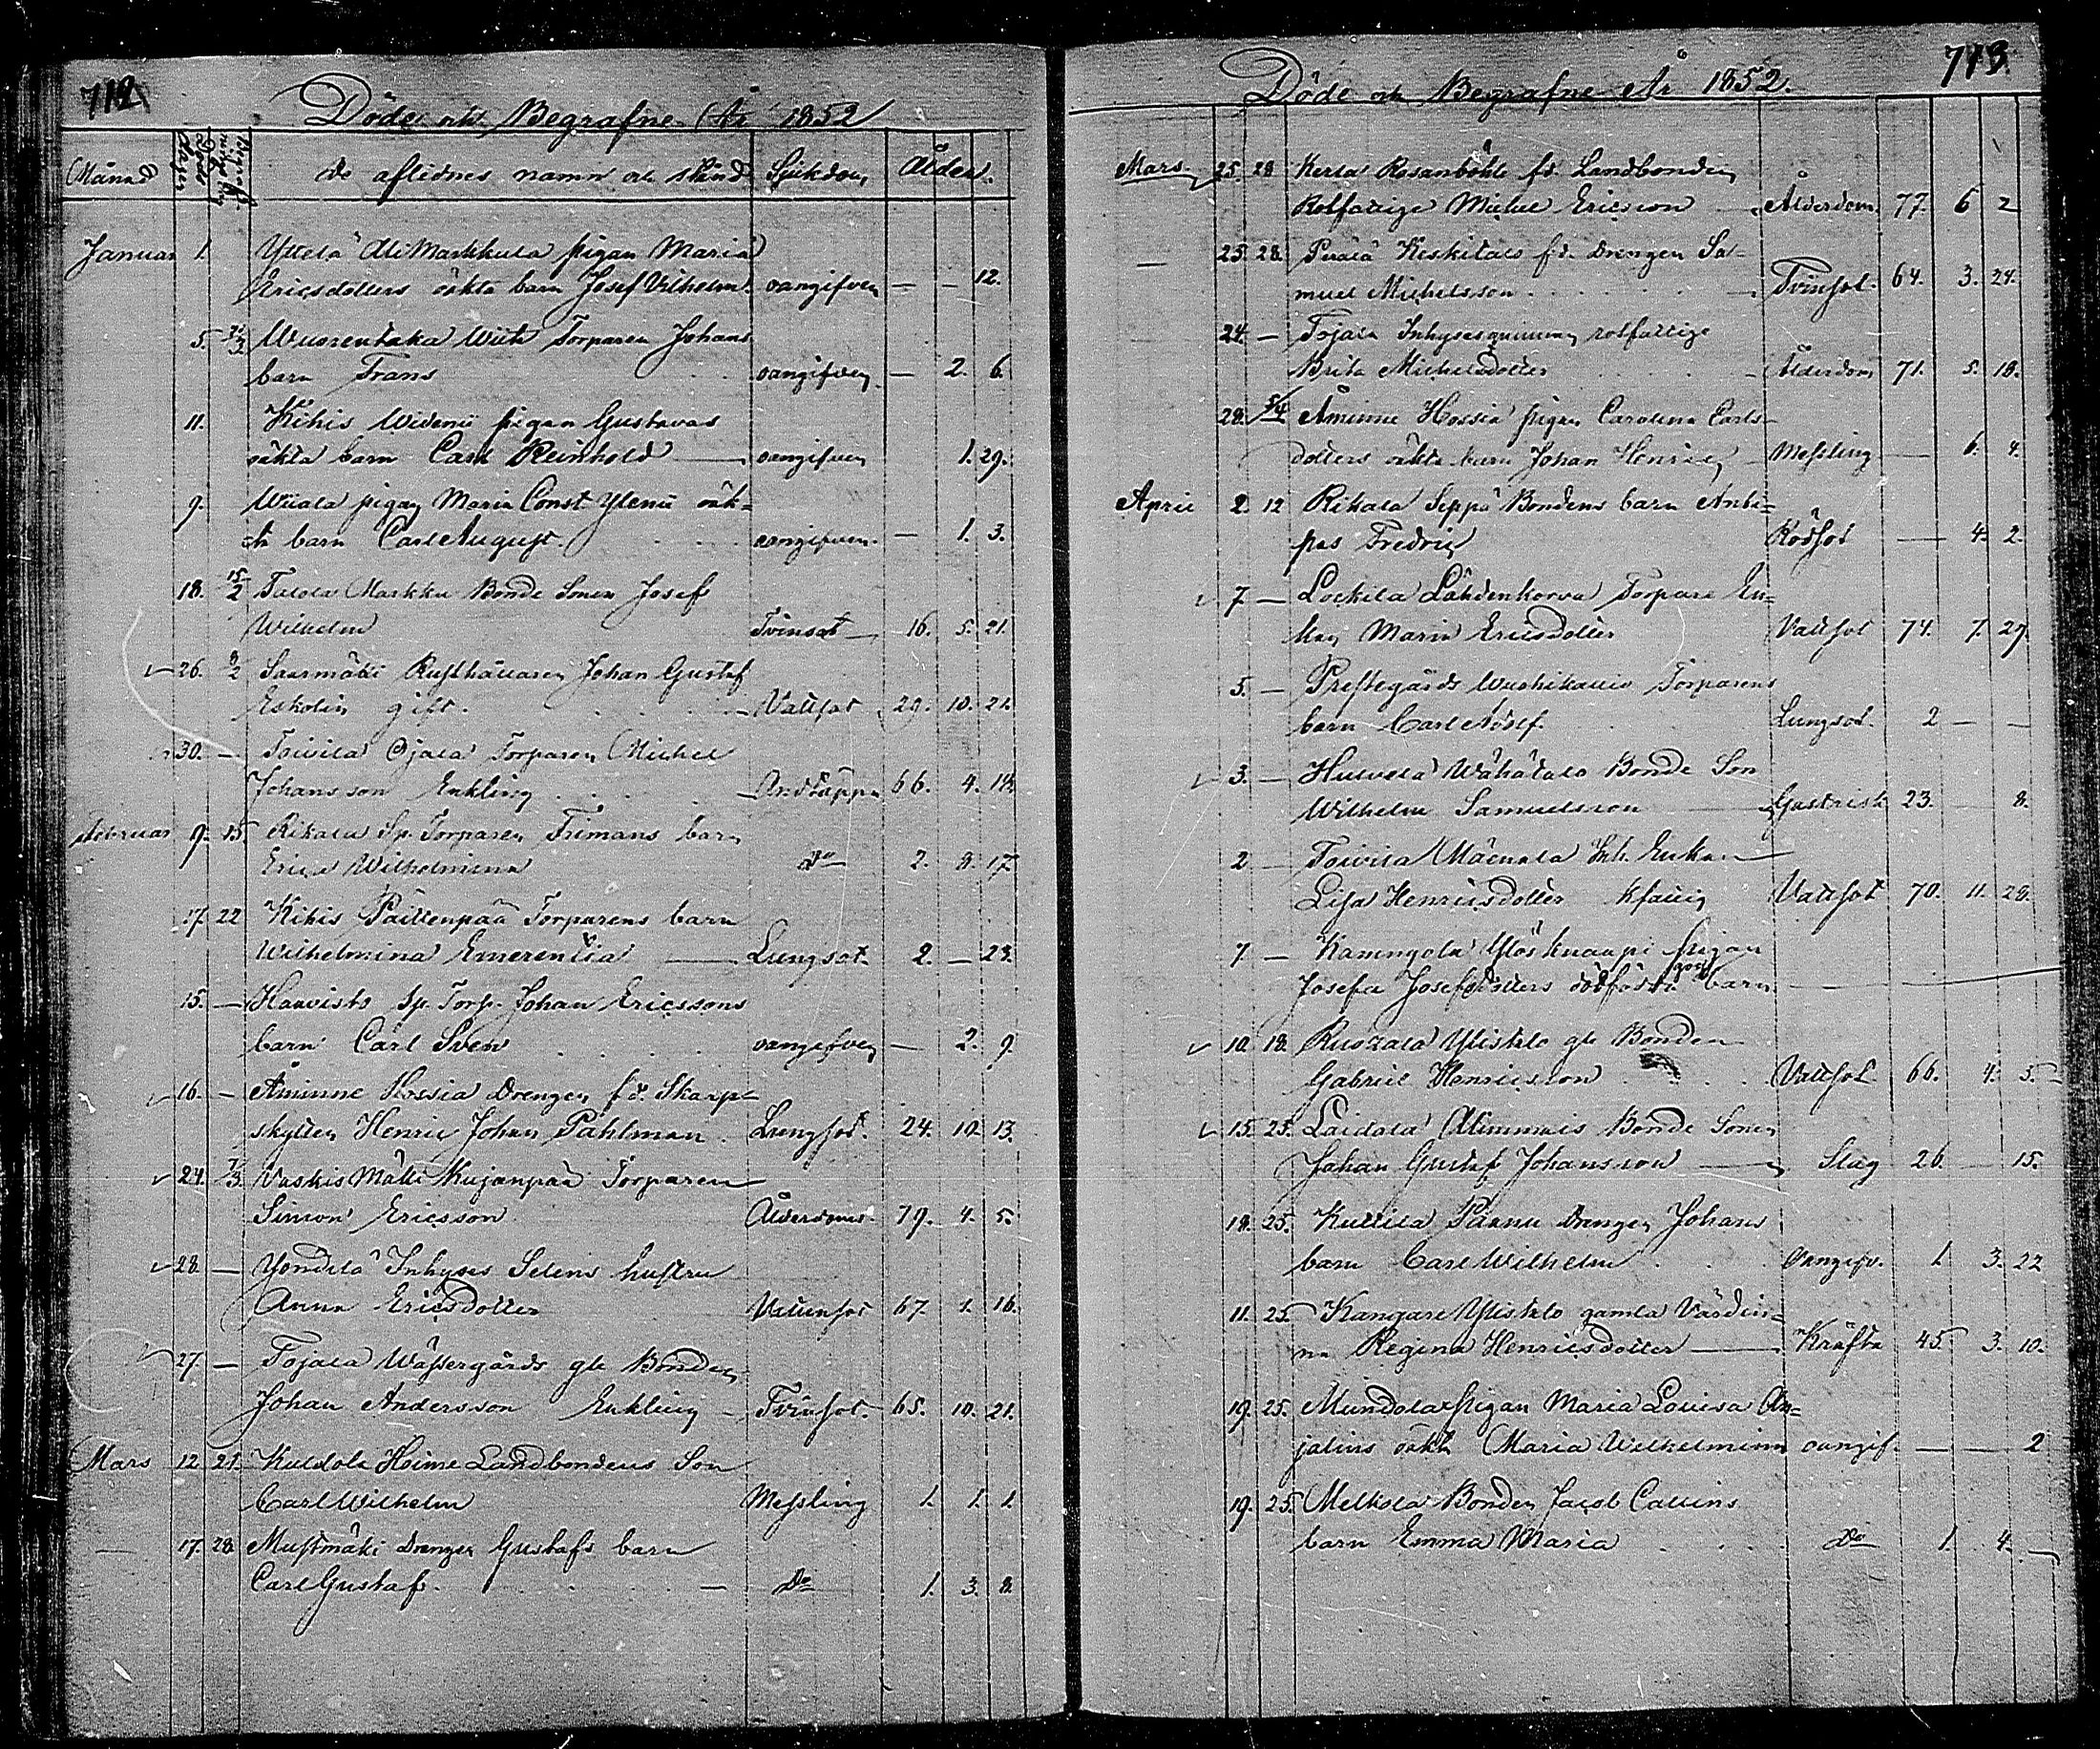 712
Döde och Begrafne År 1852
Månad Döds Dagen Begrafnings Dag de aflidnes namn och stånd Sjukdom Ålder.
Januar 1. Yttelä Ali Markkula pigan Maria
Ericsdotters oäkta barn Josef Vilhelm. oangifven — — 12.
5. 21/3 Wuorentaka Wiite Torparen Johans
barn Frans oangifven — 2. 6.
11. Kihis Widenii pigan Gustavas
oäkta barn Carl Reinhold — oangifven 1. 29.
9. Wiiala pigan Maria Const. Ylenii oäk-
ta barn Carl August. oangifven. — 1. 3.
18. 15/2 Talola Markku Bonde Sonen Josef
Wilhelm Tvinsot — 16. 5. 21.
26. 8/2 Saarmäki Rusthållaren Johan Gustaf
Eskolin gift. Vattsot 29. 10. 21.
30. — Toivila Ojala Torparen Michel
Johansson Enkling Andtäppa 66. 4. 18.
Februar 9. 15. Rikala Sp. Torparen Frimans barn
Erica Wilhelmina do 2. 8. 17.
17. 22 Kihis Päittenpää Torparens barn
Wilhelmina Emerentia — Lungsot 2. — 23.
15. — Haavisto Sp. Torp. Johan Ericssons
barn Carl Sven oangifven — 2. 9.
16. — Åminne Hossia Drengen f.d. Skarp-
skytten Henric Johan Pahlman. Lungsot. 24. 10. 13.
24. 7/3 Vaskis Mälli Kujanpää Torparen
Simon Ericsson Ålderdoms. 79. 4. 5.
28. — Yöndilä Inhyses Selens hustru
Anna Ericsdotter Vattensot 67. 1. 16.
27. — Tojala Wässergårds gle Bonden
Johan Andersson Enkling — Tvinsot. 65. 10. 21.
Mars 12. 21. Kuldola Heime Landbondens Son
Carl Wilhelm Messling 1. 1. 1.
— 17. 28. Mustmäki Drengen Gustafs barn
Carl Gustaf. — do 1. 3. 8.
713
Döde och Begrafne År 1852.
Mars. 25. 28 Kerla Rosanbohl f.d. Landbonden
Rotfattige Michel Ericsson — Ålderdom. 77. 6 2
— 25. 28. Perälä Keskitalo f.d. Drengen Sa-
muel Michelsson Tvinsot. 64. 3. 24.
24. — Tojala Inhysesquinnan rotfattige
Brita Michelsdotter Ålderdom 71. 5. 18.
28. 5/4 Åminne Hossia pigan Carolina Carls-
dotters oäkta barn Johan Henric — Messling — 6. 4.
April 2. 12 Rikala Seppä Bondens barn Anti-
pas Fredric Rödsot — 4. 2.
7 — Lockila Lähdenkorva Torpare En-
kan Maria Ericsdotter Vattsot 74. 7. 27.
5. — Prestegårds Wuohikallio Torparens
barn Carl Adolf. Lungsot. 2 — —
3. — Hulvela Wähätalo Bonde Son
Wilhelm Samuelsson — Gastrisk 23. 8.
2 — Toivila Mäenala Inh. Enkan —
Lisa Henricsdotter Kfattig Vattsot 70. 11. 28.
7 — Kaunngola Ylöskuaapi pigan
Josefa Josefsdotters dödfödda goss barn —
10. 18. Ruokala Ylistalo gle Bonden
Gabriel Henricsson Vattsot 66. 4. 5.
15. 25. Laidala Alimmais Bonde Sonen
Johan Gustaf Johansson — Slag 26. — 15.
18. 25. Kuttila Pännu Drengen Johans
barn Carl Wilhelm Oangifv. 1 3. 22
11. 25. Kangare Ylistalo gamla Värdin-
na Regina Henricsdotter — Kräfta 45. 3. 10.
19. 25. Mundola pigan Maria Lovisa An-
jalins oäkta Maria Wilhelmina oangif. — — 2
19. 25. Melkola Bonden Jacob Callins
barn Emma Maria do 1 4. —